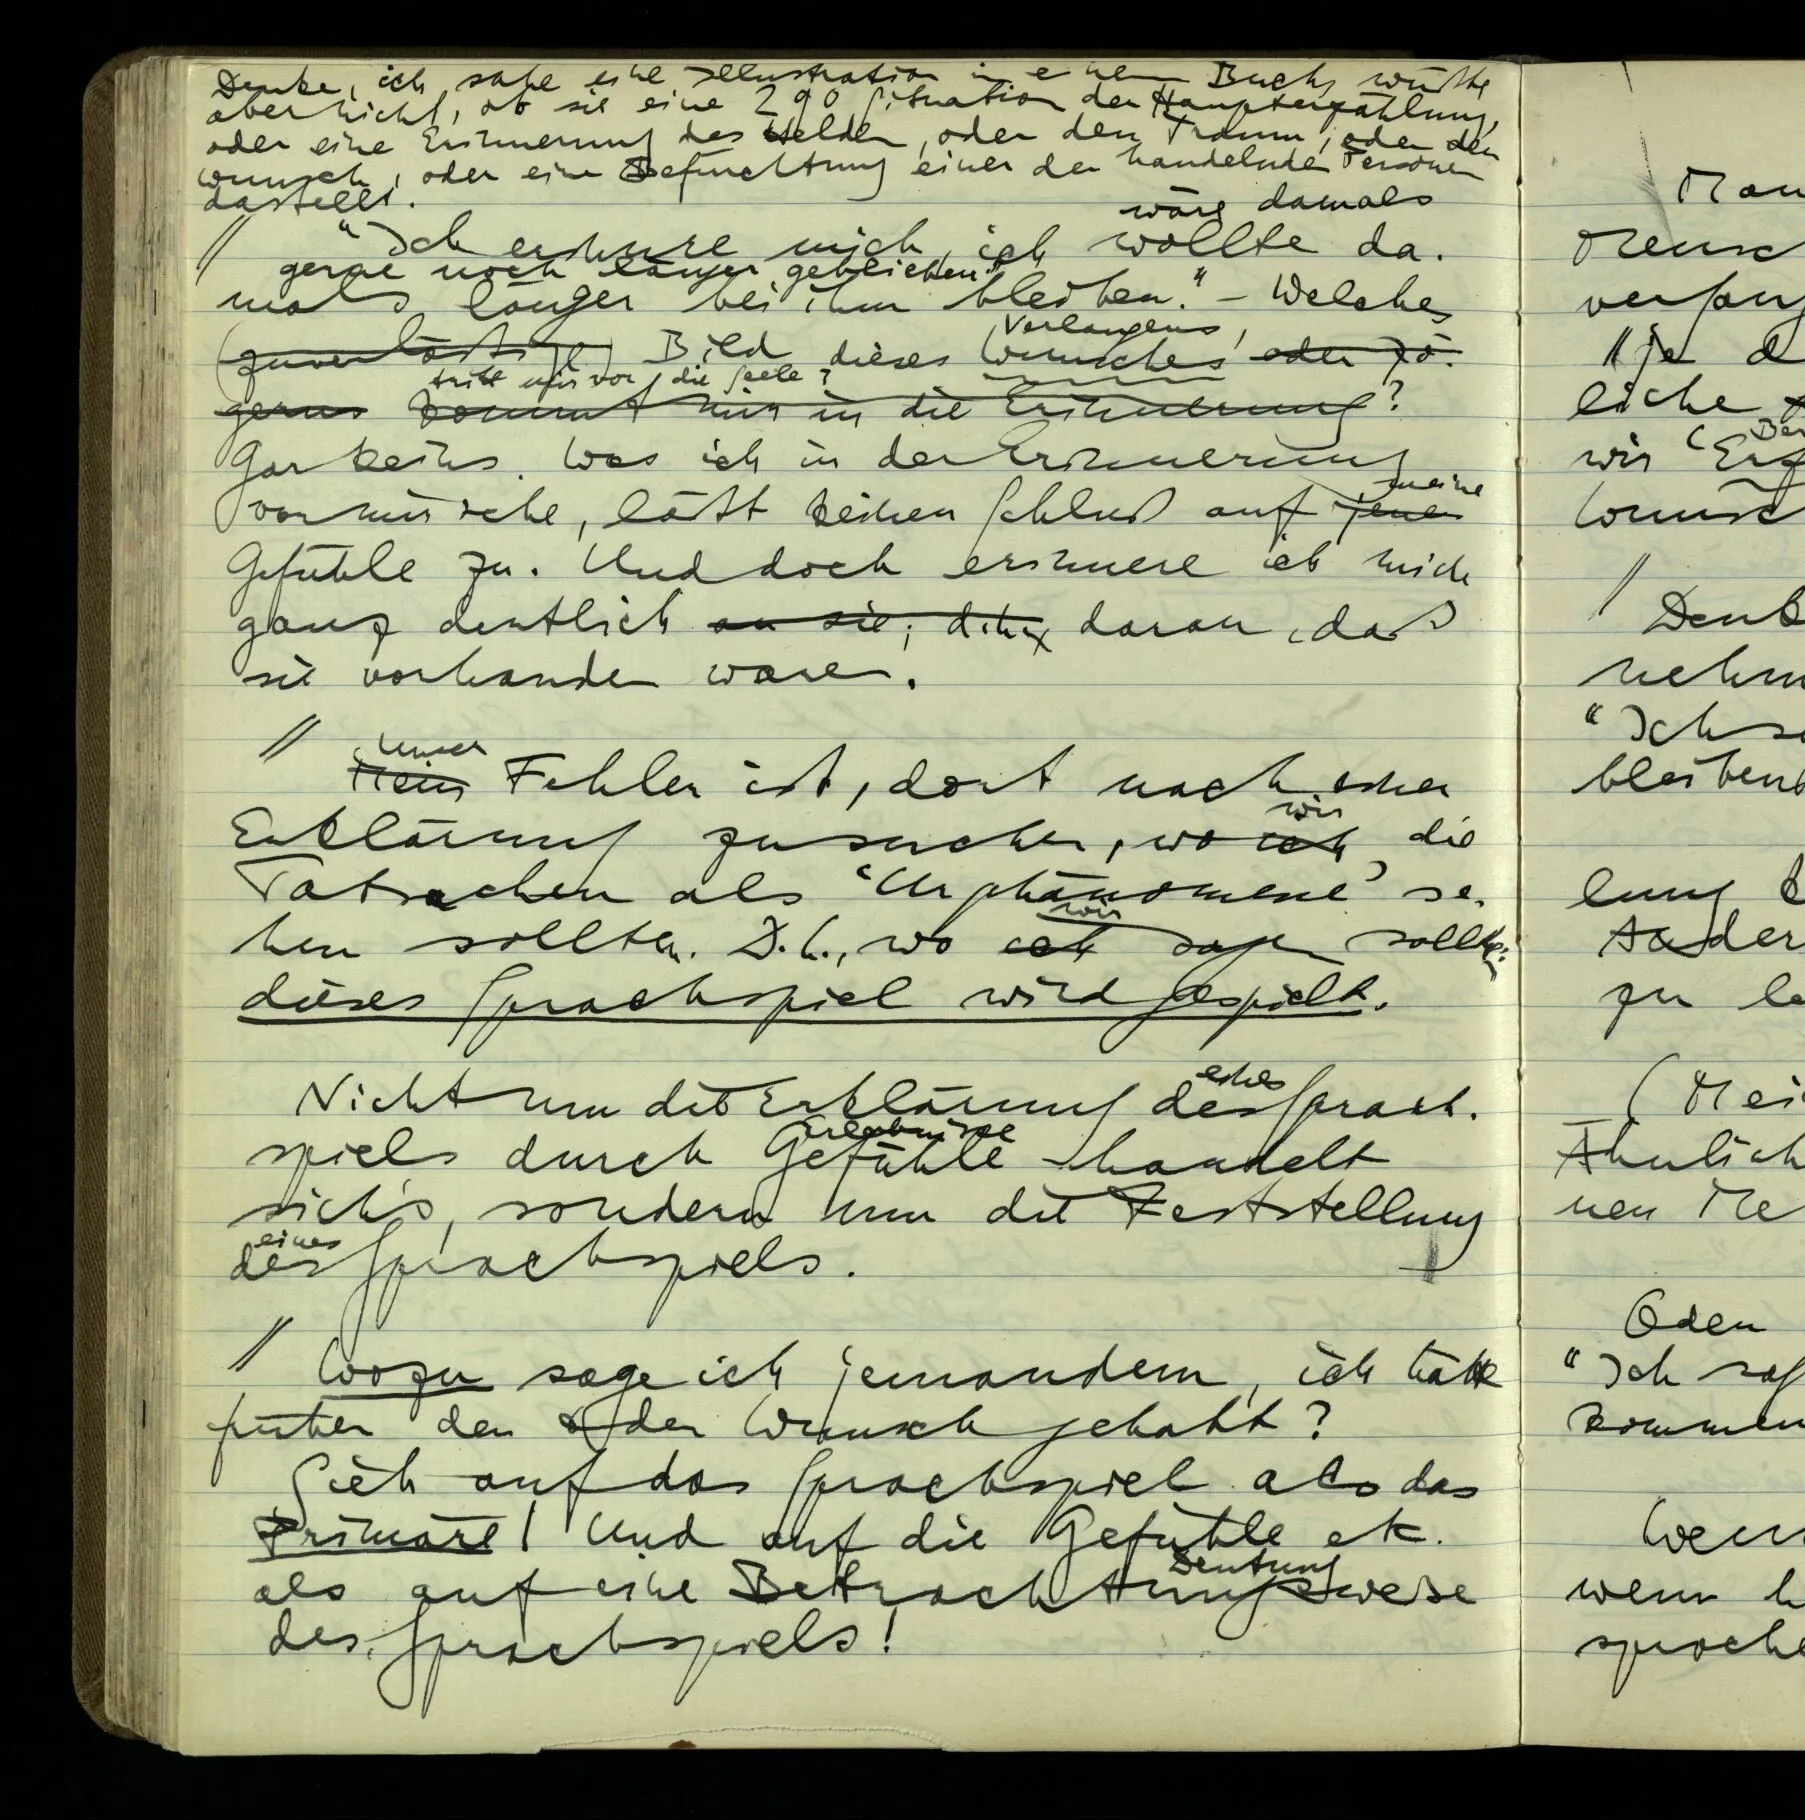 Denke, ich sähe eine Illustration in einem Buch, wüßte
aber nicht, ob sie eine Situation der Haupterzählung,
290
oder eine Erinnerung des Helden, oder den Traum, oder den
Wunsch, oder eine Befürchtung einer der handelnden Personen
darstellt.
wäre damals
// "Ich erinnere mich, ich wollte da-
gerne noch länger geblieben"
mals länger bei ihm bleiben." – Welches
Verlangens
(zuverlässige) Bild dieses Wunsches oder Zö-
tritt mir vor die Seele?
gerns kommt mir in die Erinnerung?
Gar keins. Was ich in der Erinnerung
meine
vor mir sehe, läßt keinen Schluß auf jene
Gefühle zu. Und doch erinnere ich mich
ganz deutlich an sie; daran, daß
sie vorhanden waren.
Unser
// Mein Fehler ist, dort nach einer
wir
Erklärung zu suchen, wo ich die
Tatsachen als 'Urphänomene' se-
wir
hen sollten. D.h., wo ich sagen sollten:
dieses Sprachspiel wird gespielt.
eines
Nicht um die Erklärung des Sprach-
Erlebnisse
spiels durch Gefühle handelt
sich's, sondern um die Feststellung
eines
des Sprachspiels.
// Wozu sage ich jemandem, ich hätte
früher den & den Wunsch gehabt?
Sieh auf das Sprachspiel als das
Primäre! Und auf die Gefühle etc.
Deutung
als auf eine Betrachtungsweise
des Sprachspiels!
Mensch
// Denk
"Ich
Ander
zu
(Mei
Ähnlich
nen Me
Oder
"Ich
kommen
Wenn
wenn
sprache